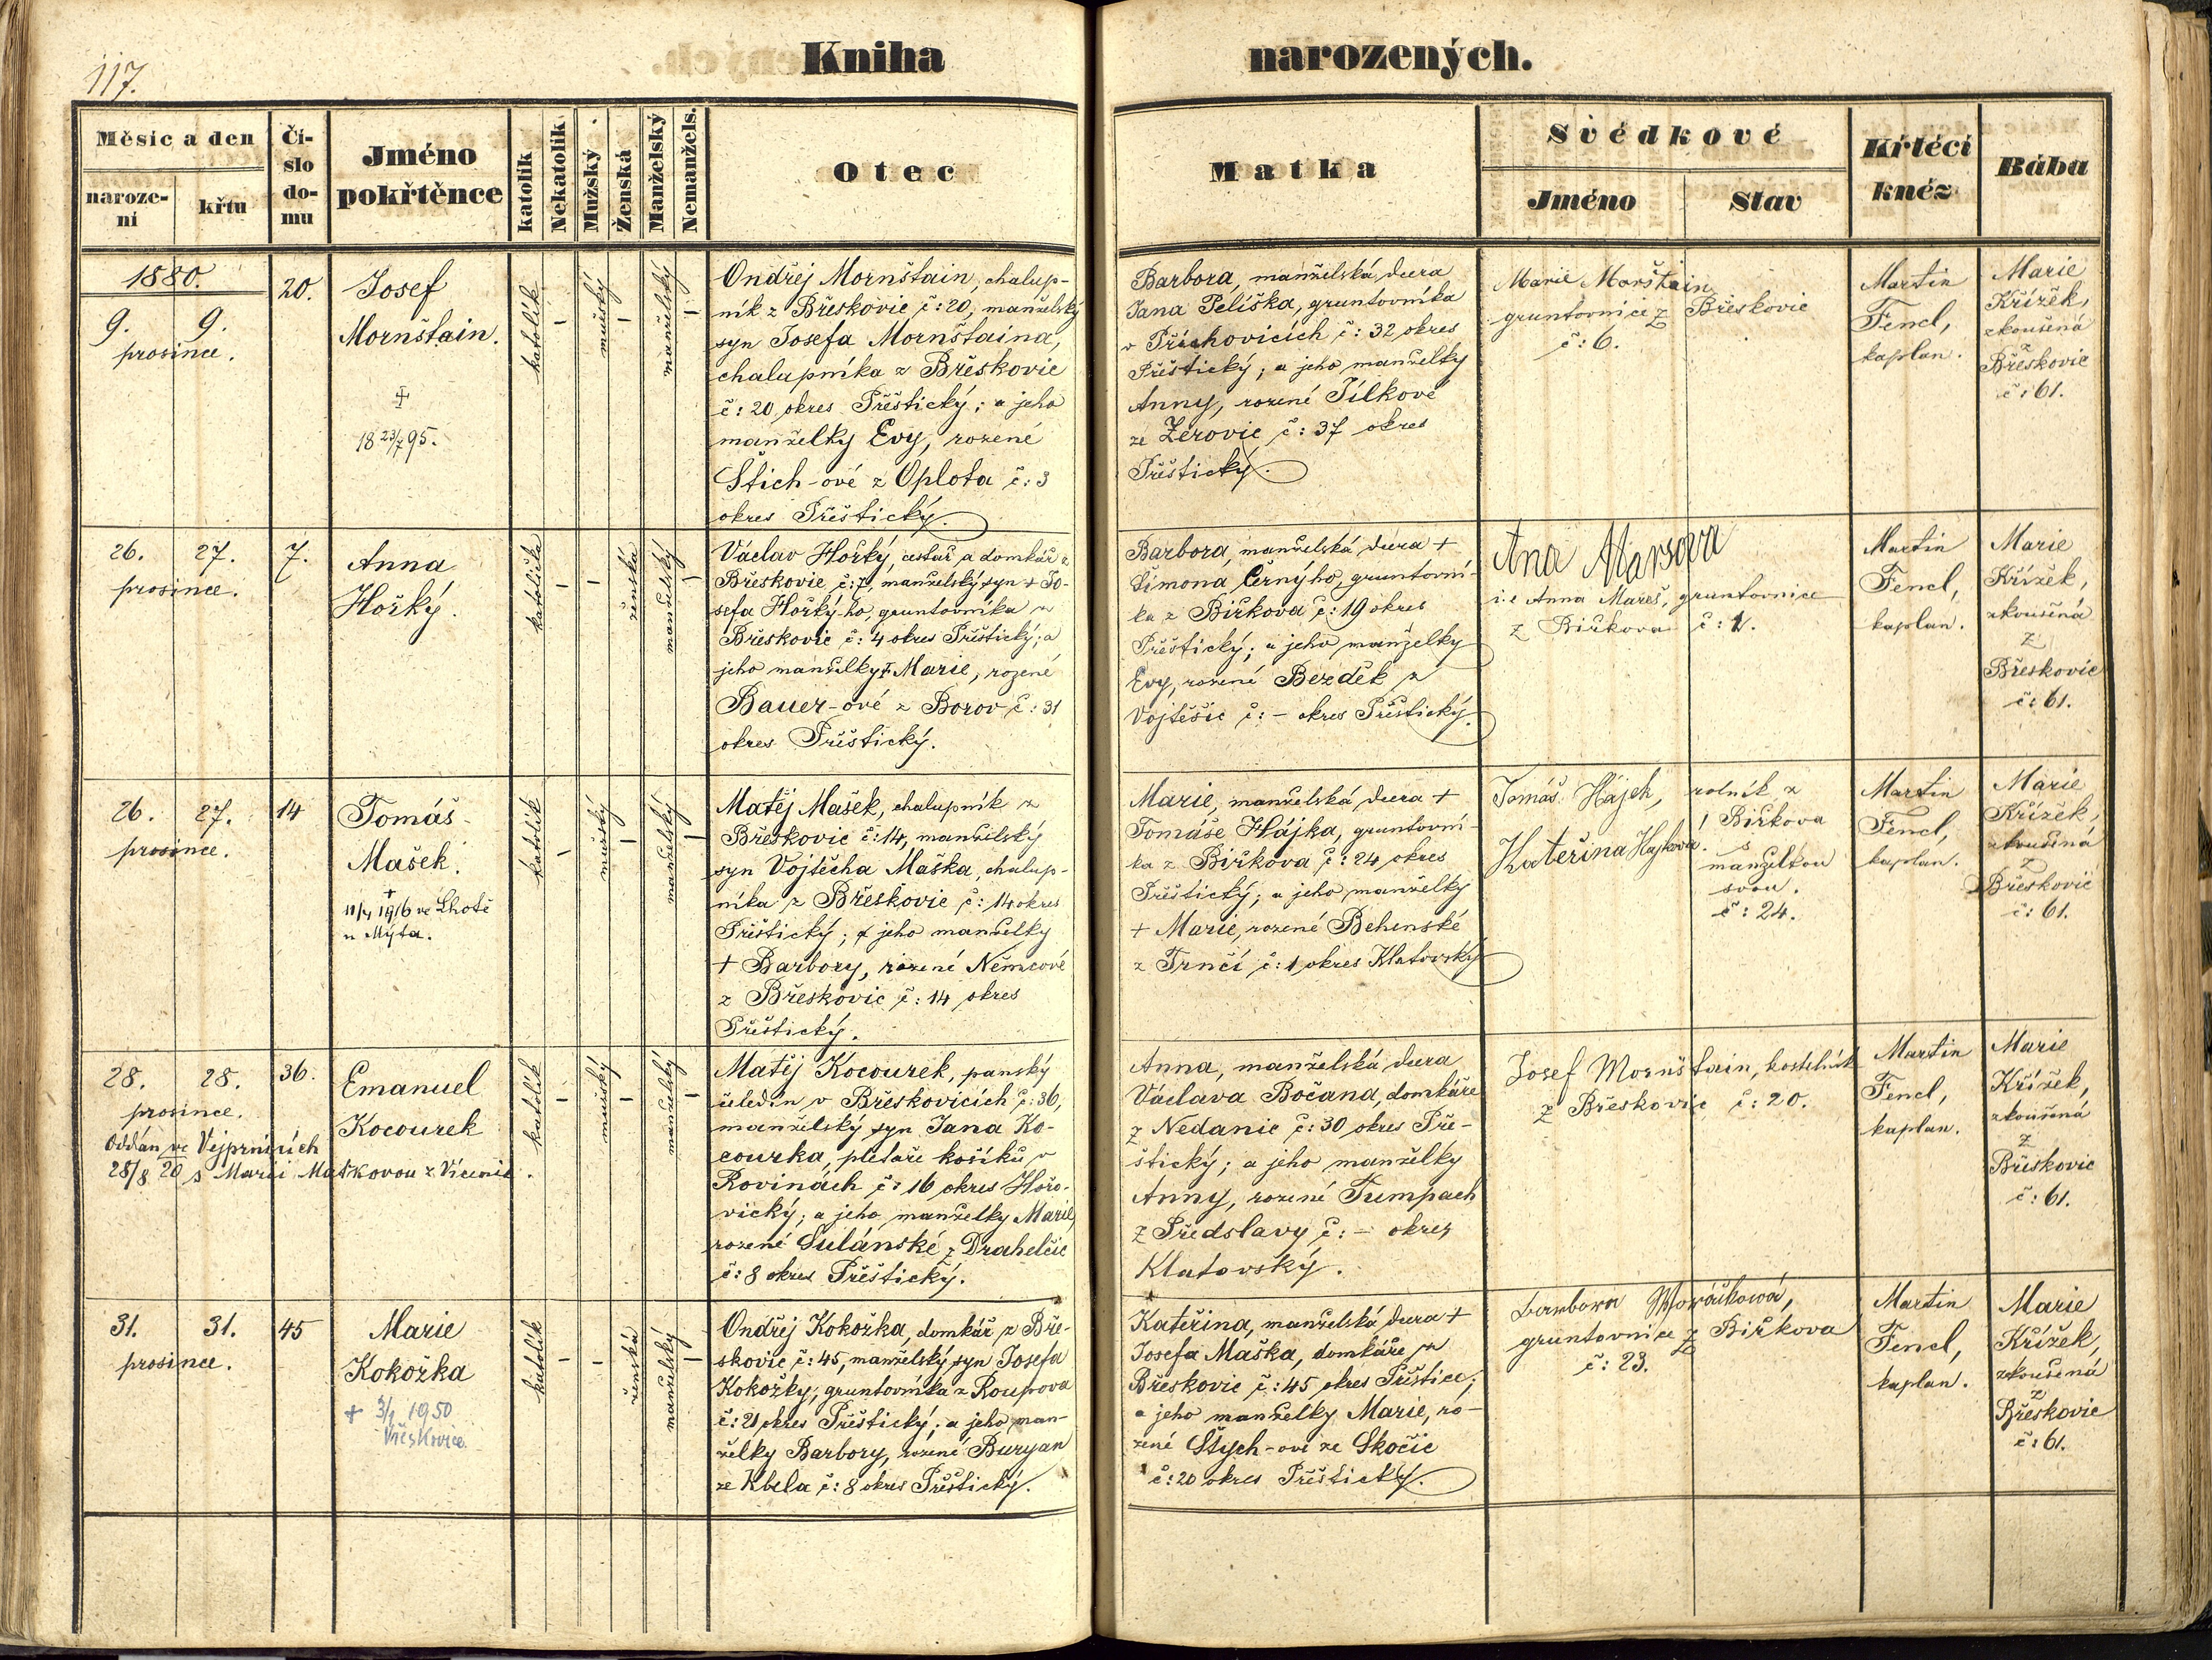 117.
Kniha narozených.
Měsíc a den
naroze-
ní
křtu
Čí-
slo
do-
mu
Jméno
pokřtěnce
katolík
Nekatolík
Mužský
Ženská
Manželský
Nemanžels.
Otec
Matka
Svědkové
Jméno
Stav
Křtěcí
kněz
Bába
1880.
9. 9.
prosince.
20.
Josef
Mornštain.
+
18 23/7 95.
katolík
–
mužský
–
manželský
–
Ondřej Mornštain, chalup-
ník z Břeskovic č: 20, manželský
syn Josefa Mornštaina,
chalupníka z Břeskovic
č: 20 okres Přeštický; a jeho
manželky Evy, rozené
Štich-ové z Oplota č: 3
okres Přeštický.
Barbora, manželská dcera
Jana Peliška, gruntovníka
v Příchovicích č: 32 okres
Přeštický; a jeho manželky
Anny, rozené Pílkové
ze Žerovic č: 37 okres
Přeštický.
Marie Morštain
gruntovnice z Břeskovic
č: 6.
Martin
Fencl,
kaplan.
Marie
Křížek,
zkoušená
z
Břeskovic
č: 61.
26. 27.
prosince.
7.
Anna
Hořký.
katolička
–
–
ženská
manželský
–
Václav Hořký, cestář a domkář z
Břeskovic č: 7, manželský syn + Jo-
sefa Hořkýho, gruntovníka z
Břeskovic č: 4 okres Přeštický; a
jeho manželky + Marie, rozené
Bauer-ové z Borov č: 31
okres Přeštický.
Barbora, manželská dcera +
Šimona Černýho, gruntovní-
ka z Biřkova č: 19 okres
Přeštický; a jeho manželky
Evy, rozené Bezděk z
Vojtěšic č: – okres Přeštický.
Ana Marsova
i.e Anna Mareš, gruntovnice
z Biřkova č: 1.
Martin
Fencl,
kaplan.
Marie
Křížek,
zkoušená
z
Břeskovic
č: 61.
26. 27.
prosince.
14
Tomáš
Mašek.
+
11/4 1916 ve Lhotě
u Mýta.
katolík
–
mužský
–
manželský
–
Matěj Mašek, chalupník z
Břeskovic č: 14, manželský
syn Vojtěcha Maška, chalup-
níka z Břeskovic č: 14 okres
Přeštický; a jeho manželky
+ Barbory, rozené Němcové
z Břeskovic č: 14 okres
Přeštický.
Marie, manželská dcera +
Tomáše Hájka, gruntovní-
ka z Biřkova č: 24 okres
Přeštický; a jeho manželky
+ Marie, rozené Behenské
z Trnčí č: 1 okres Klatovský
Tomáš Hájek, rolník z
Biřkova
Kateřina Hajková. s
manželkou
svou.
č: 24.
Martin
Fencl,
kaplan.
Marie
Křížek,
zkoušená
z
Břeskovic
č: 61.
28. 28.
prosince.
Oddán ve Vejprnicích
28/8 20 s Marií Maškovou z Vícenic.
36.
Emanuel
Kocourek
katolík
–
mužský
–
manželský
–
Matěj Kocourek, panský
čeledín v Břeskovicích č: 36,
manželský syn Jana Ko-
courka, pletaře košíků v
Rovinách č: 16 okres Hořo-
vický; a jeho manželky Marie,
rozené Sulánské z Drahelčic
č: 8 okres Přeštický.
Anna, manželská dcera
Václava Bočana, domkáře
z Nedanic č: 30 okres Pře-
štický; a jeho manželky
Anny, rozené Tumpach
z Předslavy č: – okres
Klatovský.
Josef Mornštain, kostelník
z Břeskovic č: 20.
Martin
Fencl,
kaplan.
Marie
Křížek,
zkoušená
z
Břeskovic
č: 61.
31. 31.
prosince.
45
Marie
Kokožka
+ 3/1 1950
Vřeskovice
katolík
–
–
ženská
manželský
–
Ondřej Kokožka, domkář z Bře-
skovic č: 45, manželský syn Josefa
Kokožky, gruntovníka z Roupova
č: 21 okres Přeštický; a jeho man-
želky Barbory, rozené Buryan
ze Kbela č: 8 okres Přeštický.
Kateřina, manželská dcera +
Josefa Maška, domkáře z
Břeskovic č: 45 okres Přeštice;
a jeho manželky Marie, ro-
zené Štych-ové ze Skočic
č: 20 okres Přeštický.
gruntovnice z Biřkova
č: 23.
Martin
Fencl,
kaplan.
Marie
Křížek,
zkoušená
z
Břeskovic
č: 61.